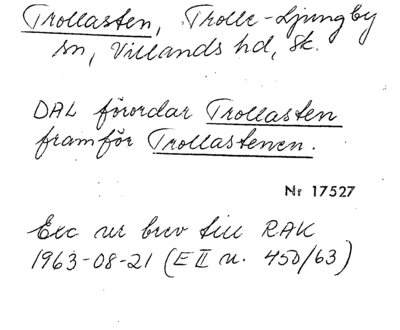 Trollasten, Trolle-Ljungby
sn, Villands hd, Sk.
DAL förordar Trollasten
framför Trollastenen.
Nr 17527
Exc ur brev till RAK
1963-08-21 (E II u. 450/63)